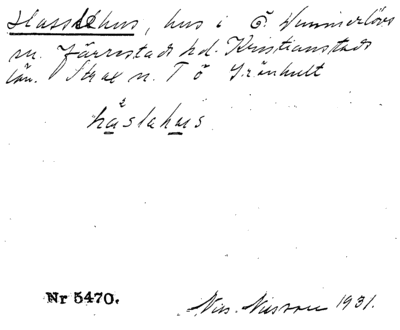 Hasslehus, hus i Ö. Vemmerlövs
sn. Järrestads hd. Kristianstads
län. Strax n. T ö Grönhult
håslahus
Nr 5470.
Nils Nilsson 1931.